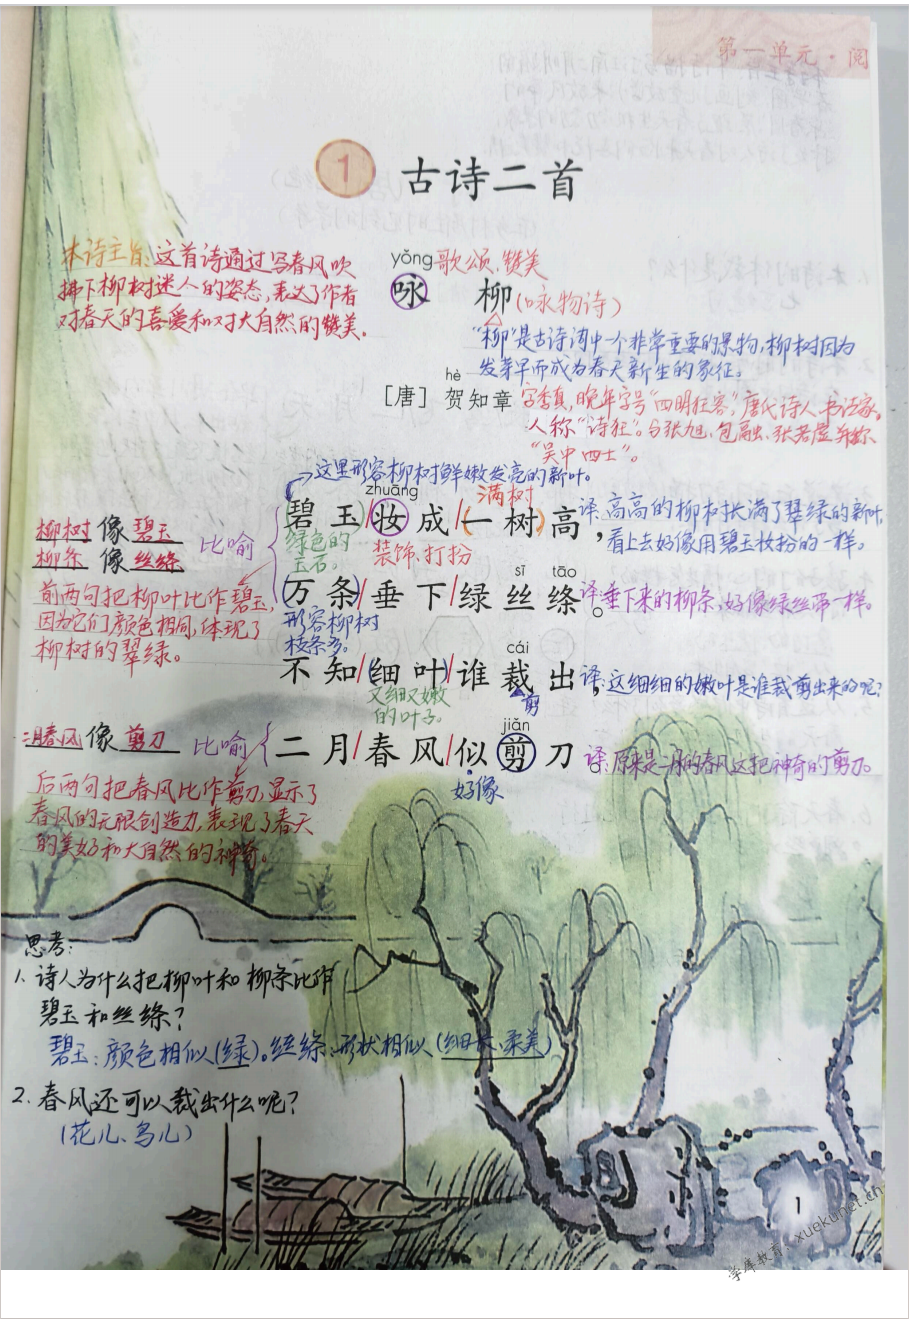 第一单元·阅
1 古诗二首
本诗主旨:这首诗通过写春风吹
拂下柳树迷人的姿态,表达了作者
对春天的喜爱和对大自然的赞美。
yǒng 歌颂、赞美
咏 柳(咏物诗)
“柳”是古诗词中一个非常重要的景物,柳树因为
发芽早而成为春天新生的象征。
hè
[唐] 贺知章 字季真,晚年字号“四明狂客”,唐代诗人、书法家。
人称“诗狂”。与张旭、包融、张若虚并称
“吴中四士”。
这里形容柳树鲜嫩发亮的新叶。
zhuāng 满树
碧玉/妆成/(一树)高, 译:高高的柳树长满了翠绿的新叶,
看上去好像用碧玉妆扮的一样。
绿色的
玉石。
装饰、打扮
柳树 像 碧玉
柳条 像 丝绦
比喻
前两句把柳叶比作碧玉,
因为它们颜色相同,体现了
柳树的翠绿。
sī tāo
(万条)/垂下/绿丝绦。 译:垂下来的柳条,好像绿丝带一样。
形容柳树
枝条多。
cái
不知/(细叶)/谁裁出, 译:这细细的嫩叶是谁裁剪出来的呢?
又细又嫩
的叶子。
剪
jiǎn
二月春风 像 剪刀 比喻
二月/春风/似剪刀。 译:原来是二月的春风这把神奇的剪刀。
好像
后两句把春风比作剪刀,显示了
春风的无限创造力,表现了春天
的美好和大自然的神奇。
思考:
1. 诗人为什么把柳叶和柳条比作
碧玉和丝绦?
碧玉:颜色相似(绿)。丝绦:形状相似(细长、柔美)
2. 春风还可以裁出什么呢?
(花儿、鸟儿)
1
学库教育:xuekunet.cn